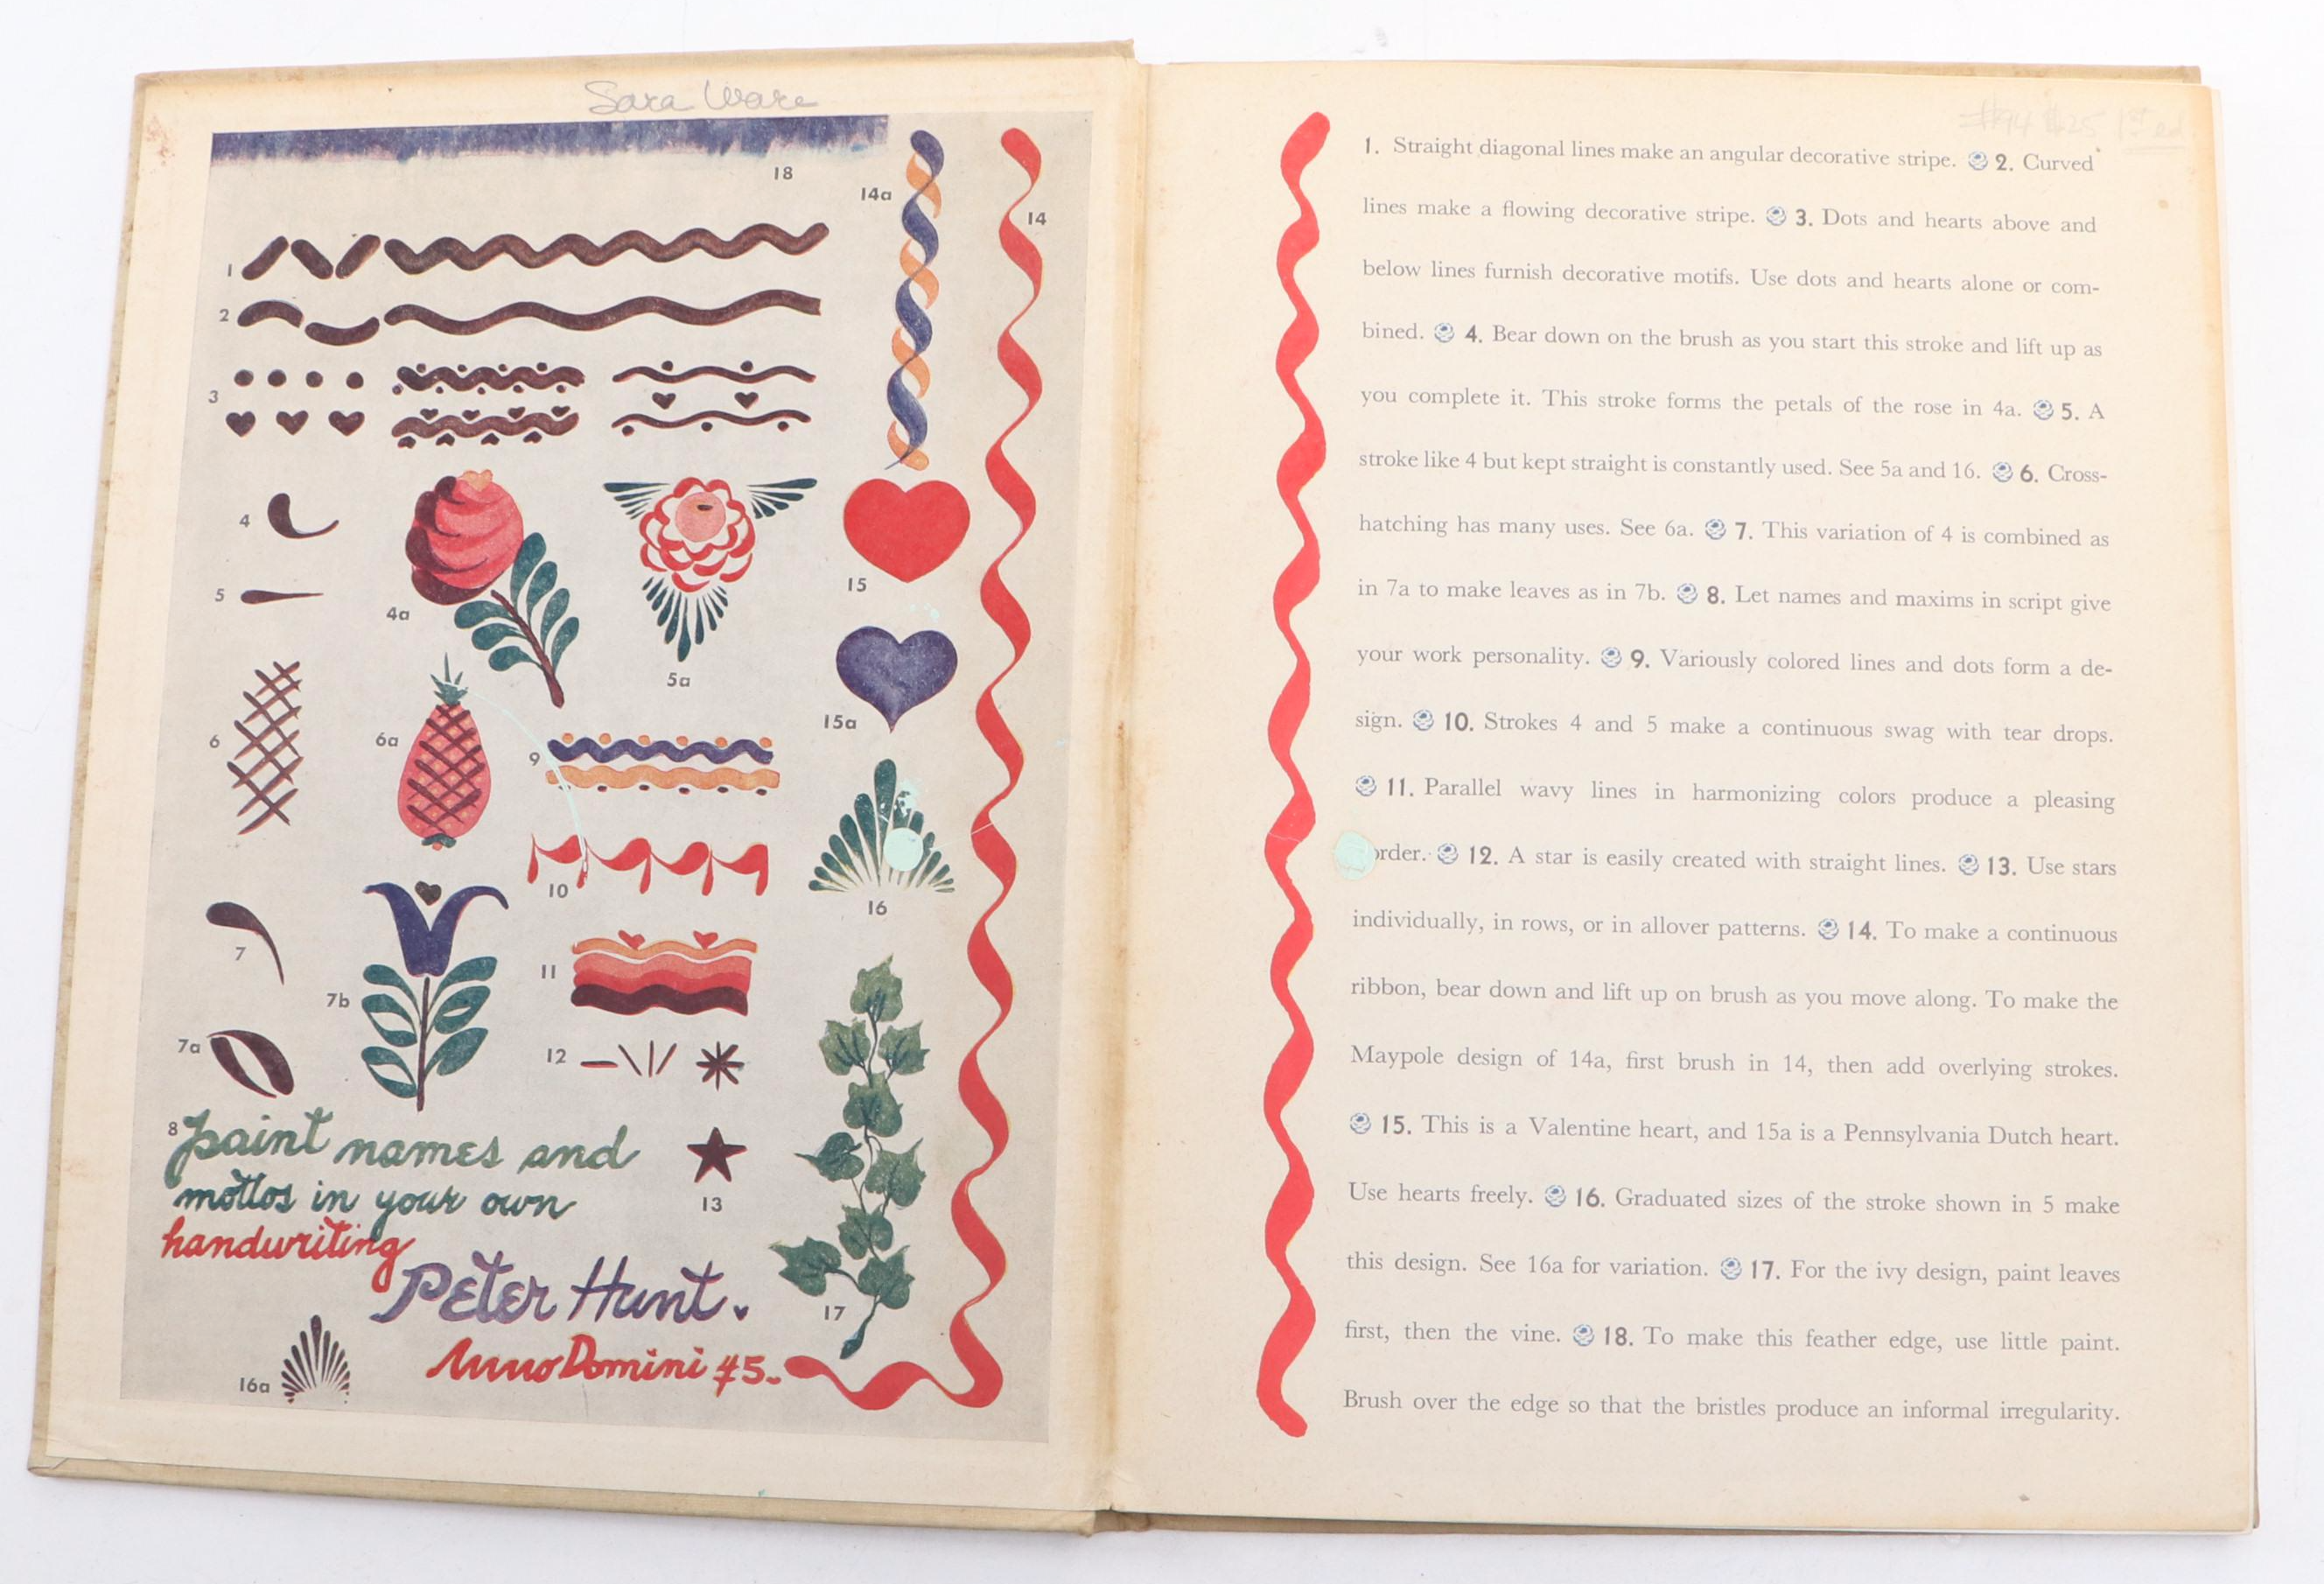 Sara Ware
18
14a
14
1
2
3
4
4a
5
5a
15
15a
6
6a
9
10
16
7
7b
11
7a
12
8 paint names and
mottos in your own
handwriting
13
Peter Hunt.
17
Anno Domini 45.
16a
#94 $25 1st ed
1. Straight diagonal lines make an angular decorative stripe. 2. Curved
lines make a flowing decorative stripe. 3. Dots and hearts above and
below lines furnish decorative motifs. Use dots and hearts alone or com-
bined. 4. Bear down on the brush as you start this stroke and lift up as
you complete it. This stroke forms the petals of the rose in 4a. 5. A
stroke like 4 but kept straight is constantly used. See 5a and 16. 6. Cross-
hatching has many uses. See 6a. 7. This variation of 4 is combined as
in 7a to make leaves as in 7b. 8. Let names and maxims in script give
your work personality. 9. Variously colored lines and dots form a de-
sign. 10. Strokes 4 and 5 make a continuous swag with tear drops.
11. Parallel wavy lines in harmonizing colors produce a pleasing
order. 12. A star is easily created with straight lines. 13. Use stars
individually, in rows, or in allover patterns. 14. To make a continuous
ribbon, bear down and lift up on brush as you move along. To make the
Maypole design of 14a, first brush in 14, then add overlying strokes.
15. This is a Valentine heart, and 15a is a Pennsylvania Dutch heart.
Use hearts freely. 16. Graduated sizes of the stroke shown in 5 make
this design. See 16a for variation. 17. For the ivy design, paint leaves
first, then the vine. 18. To make this feather edge, use little paint.
Brush over the edge so that the bristles produce an informal irregularity.